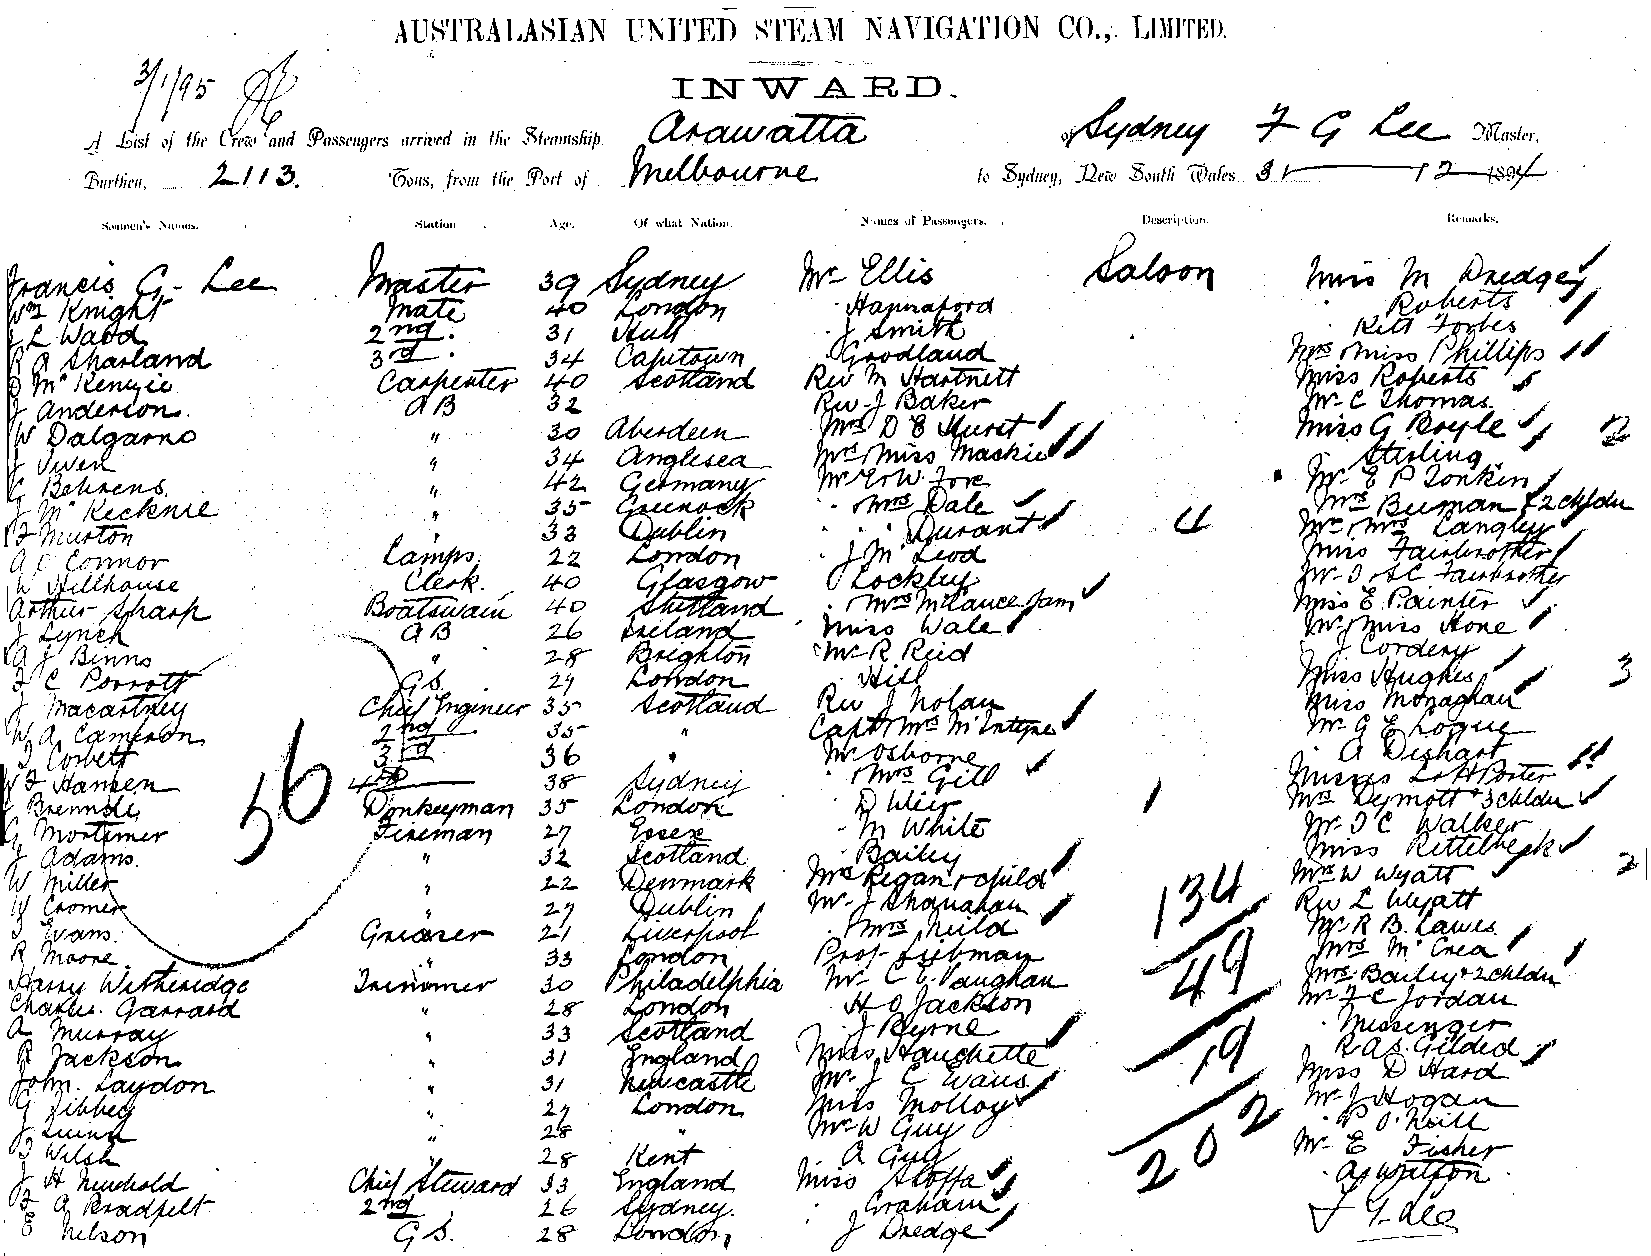 AUSTRALASIAN UNITED STEAM NAVIGATION CO., LIMITED.
3/1/95
INWARD.
A List of the Crew and Passengers arrived in the Steamship Arawatta of Sydney F G Lee Master,
Burthen, 2113. Tons, from the Port of Melbourne to Sydney, New South Wales 31 12 1894
Seamen's Names. Station Age. Of what Nation. Names of Passengers. Description. Remarks.
Francis G. Lee Master 39 Sydney Mr Ellis Saloon Miss M Dredge
Wm Knight Mate 40 London Hannaford Roberts
J L Ward 2nd 31 Hull J Smith Kett Forbes
R A Sharland 3rd 34 Capetown Goodland Mrs Miss Phillips
D McKenzie Carpenter 40 Scotland Rev M Hartnett Miss Roberts
J Anderson. AB 32 Rev J Baker Mr C Thomas.
W Dalgarno " 30 Aberdeen Mrs D E Hurst Miss G Boyle 2
J Owen " 34 Anglesea Mrs Miss Maskie Stirling
G Behrens. " 42 Germany Mr E W Fore Mr E P Tonkin
J McKecknie " 35 Greenock Mrs Dale Mrs Burman & 2 chldn
F Murton " 33 Dublin Durant 4 Mr Mrs Langley
A O Connor Lamps 22 London J McLeod Miss Fairbrother
W Hillhouse Clerk 40 Glasgow Lockley Mr Fairbrother
Arthur Sharp Boatswain 40 Shetland Mrs Miss E Painter
J Lynch AB 26 Ireland Miss Wale Mr Miss Hone
A J Binns " 28 Brighton Mr R Reid J Cordery
F C Porrott GS. 29 London Hill Miss Hughes 3
J Macartney Chief Engineer 35 Scotland Rev J Nolan Miss Monaghan
W A Cameron 2nd 35 " Capt Mrs McIntyre Mr G E Logue
J Corbett 3rd 36 " Mr Osborne A Dishart
W F Hansen 4th 38 Sydney Mrs Gill Misses L & H Porter
Brennde Donkeyman 35 London D Weir 1 Mrs Dymott & 3 chldn
G Mortimer 56 Fireman 27 Essex M White Mr J C Walker
J Adams. " 32 Scotland Bailey Miss
W Miller " 22 Denmark Mrs Regan & child Mrs W Wyatt 2
W Cromer " 29 Dublin Mr J Shanahan 134 Rev L Wyatt
J Evans. Greaser 21 Liverpool Mrs Auld Mr R B. Lawes
R Moore. " 33 London Prof. Liebman 49 Mrs McCrea
Harry Witheridge Trimmer 30 Philadelphia Mr C E Vaughan Mrs Bailey & 2 chldn
Charles Garrard " 28 London H O Jackson Mr F C Jordan
A Murray " 33 Scotland J Byrne Messenger
R Jackson " 31 England Miss Hauchette 19 Gilded
John Laydon " 31 Newcastle Mr J E Evans Miss D Hard
G Tibbey " 27 London Miss Molloy Mr J Hogan
J Quinn " 28 " Mr W Guy 202 P O'Neill
Welsh " 28 Kent A Guy Mr E Fisher
J H Newbold Chief Steward 33 England Miss Watson
F A Bradfelt 2nd 26 Sydney. Graham F G Lee
E Nelson GS. 28 London, J Dredge